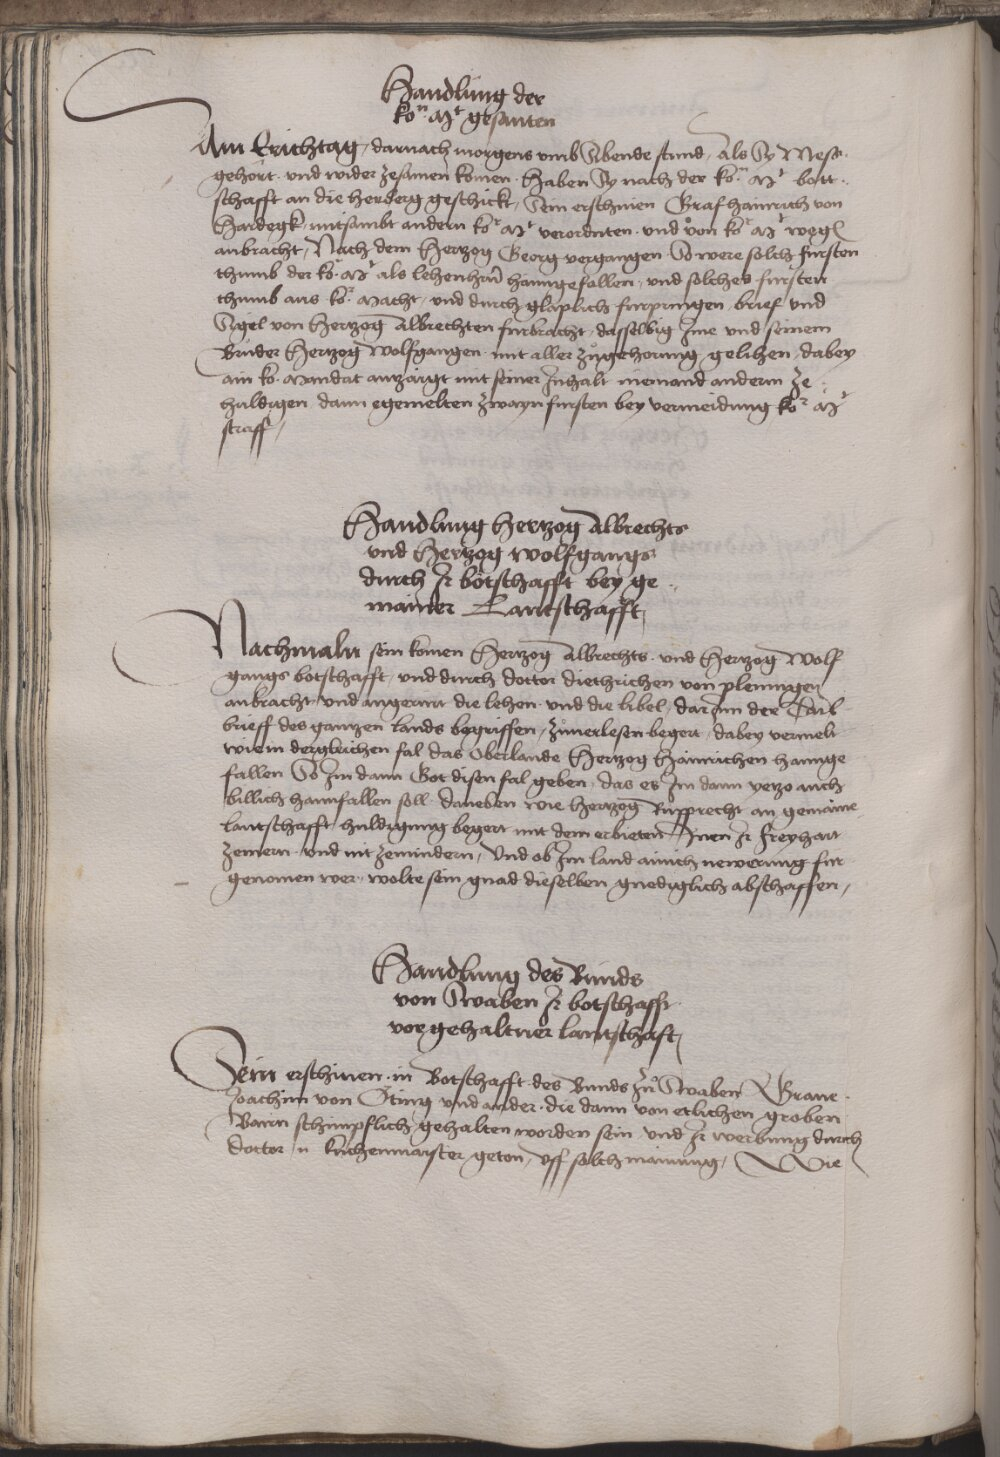 Handlung der
ko.n Mt gesanten
Am Erichtag, darnach morgens umb Sibende stund, Als Sy Mess
gehort und wider zesamen komen, Haben Sy nach der ko.n Mt bott
schafft an die herberg geschickt, Sein erschinen Graf Hainrich von
Hardegk mitsambt andern ko.r Mt verordnten und von ko.r Mt wegen
anbracht, Nach dem Hertzog Georg vergangen So were solch fursten
thumb der ko. Mt als lehenherrn haimgefallen, und solches fursten
thumb aus ko.r Macht, und durch glaplich furpringen brief und
Sigel von Hertzog Albrechten furbracht, dasselbig Ime und seinem
Bruder Hertzog Wolfgangen mit aller zugehorung gelihen, dabey
ain ko. Mandat anzaigt mit seiner Inhalt niemand anderm ze
huldigen dann egemelten zwayn fursten bey vermeidung ko.r Mt
straff,
Handlung Hertzog Albrechts
und Hertzog Wolfgangs
durch Ir botschafft bey ge
mainer Lantschafft,
Nachmaln sein komen Hertzog Albrechts und Hertzog Wolf
gangs botschafft, und durch doctor diethrichen von pleningen
anbracht und angerurt die lehen und die libel, darInn der Tail
brieff des gantzen lands begriffen, zuverlesen begert, dabey vermelt
wie in dergleichen fal das Oberlande Hertzog Hainrichen haimge
fallen So Im dann Got disen fal geben, das es Im dann yetzo auch
billich haimfallen soll, daneben wie Hertzog Rupprecht an gemaine
lantschafft huldigung begert mit dem erbieten Inen Ir freyhait
zemern und nit zemindern, Und ob Im land ainich newerung fur
genomen wer, wolte sein gnad dieselben gnediglich abschaffen,
Handlung des Bunds
von Swaben Ir botschafft
vor gehaltner lantschaft,
Sein erschinen in Botschafft des Bunds zu Swaben Grave
Joachim von Oting und ander, die dann von etlichen groben
Bairn schimpflich gehalten worden sein, und Ir werbung durch
doctor n kuchenmaister geton, uff solch mainung, Wie